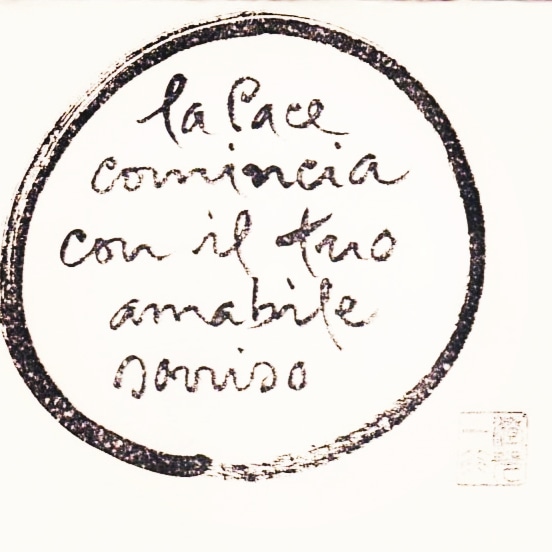 la Pace
comincia
con il tuo
amabile
sorriso